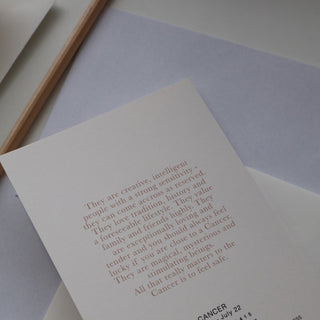 They are creative, intelligent
people with a strong sensitivity,
they can come accross as reserved.
They love tradition, history and
a foreseeable lifestyle. They value
family and friends highly. They
are exceptionally loving and
tender and you should always feel
lucky if you are close to a Cancer.
They are magical, mysterious and
stimulating beings.
All that really matters to the
Cancer is to feel safe.
CANCER
July 22